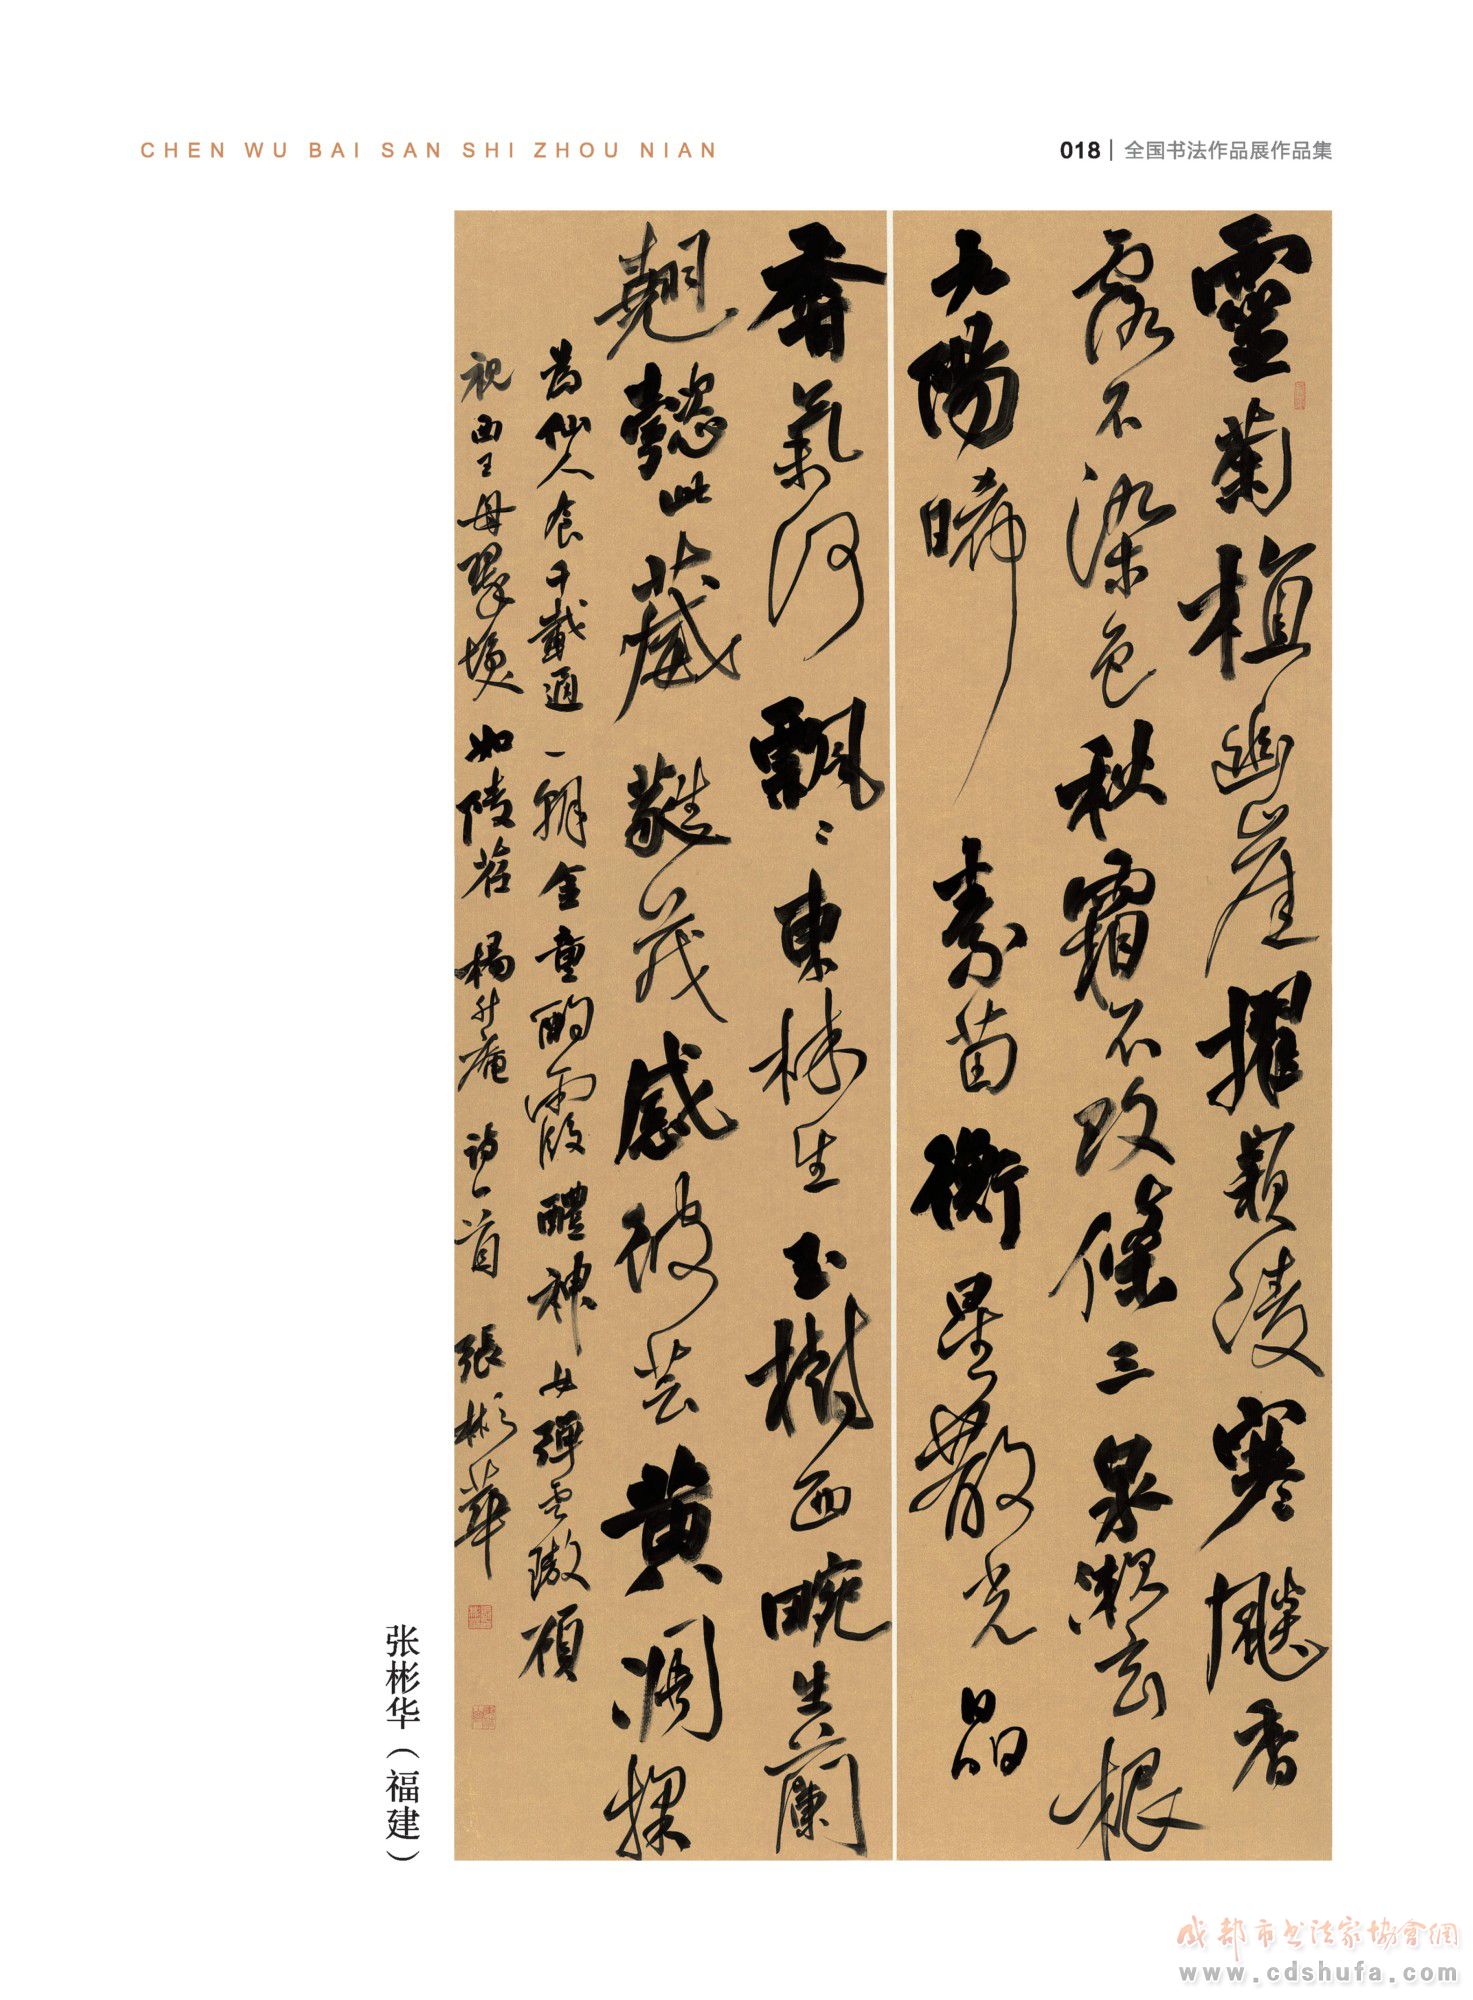 CHEN WU BAI SAN SHI ZHOU NIAN
018 | 全国书法作品展作品集
靈菊植幽崖擢穎凌寒飈春
露不染色秋霜不改條三泉漱玄根
九陽晞素苗衡星散光晶
氣何飄〻東林生玉樹西畹生蘭
翹懿此葳蕤茂感彼芸黄凋採
為仙人食千載適一朝金童酌霞醴神女彈雲璈願
祝西王母翠如陵苕 楊升庵詩一首 張彬華
张彬华（福建）
成都市书法家協會網
www.cdshufa.com